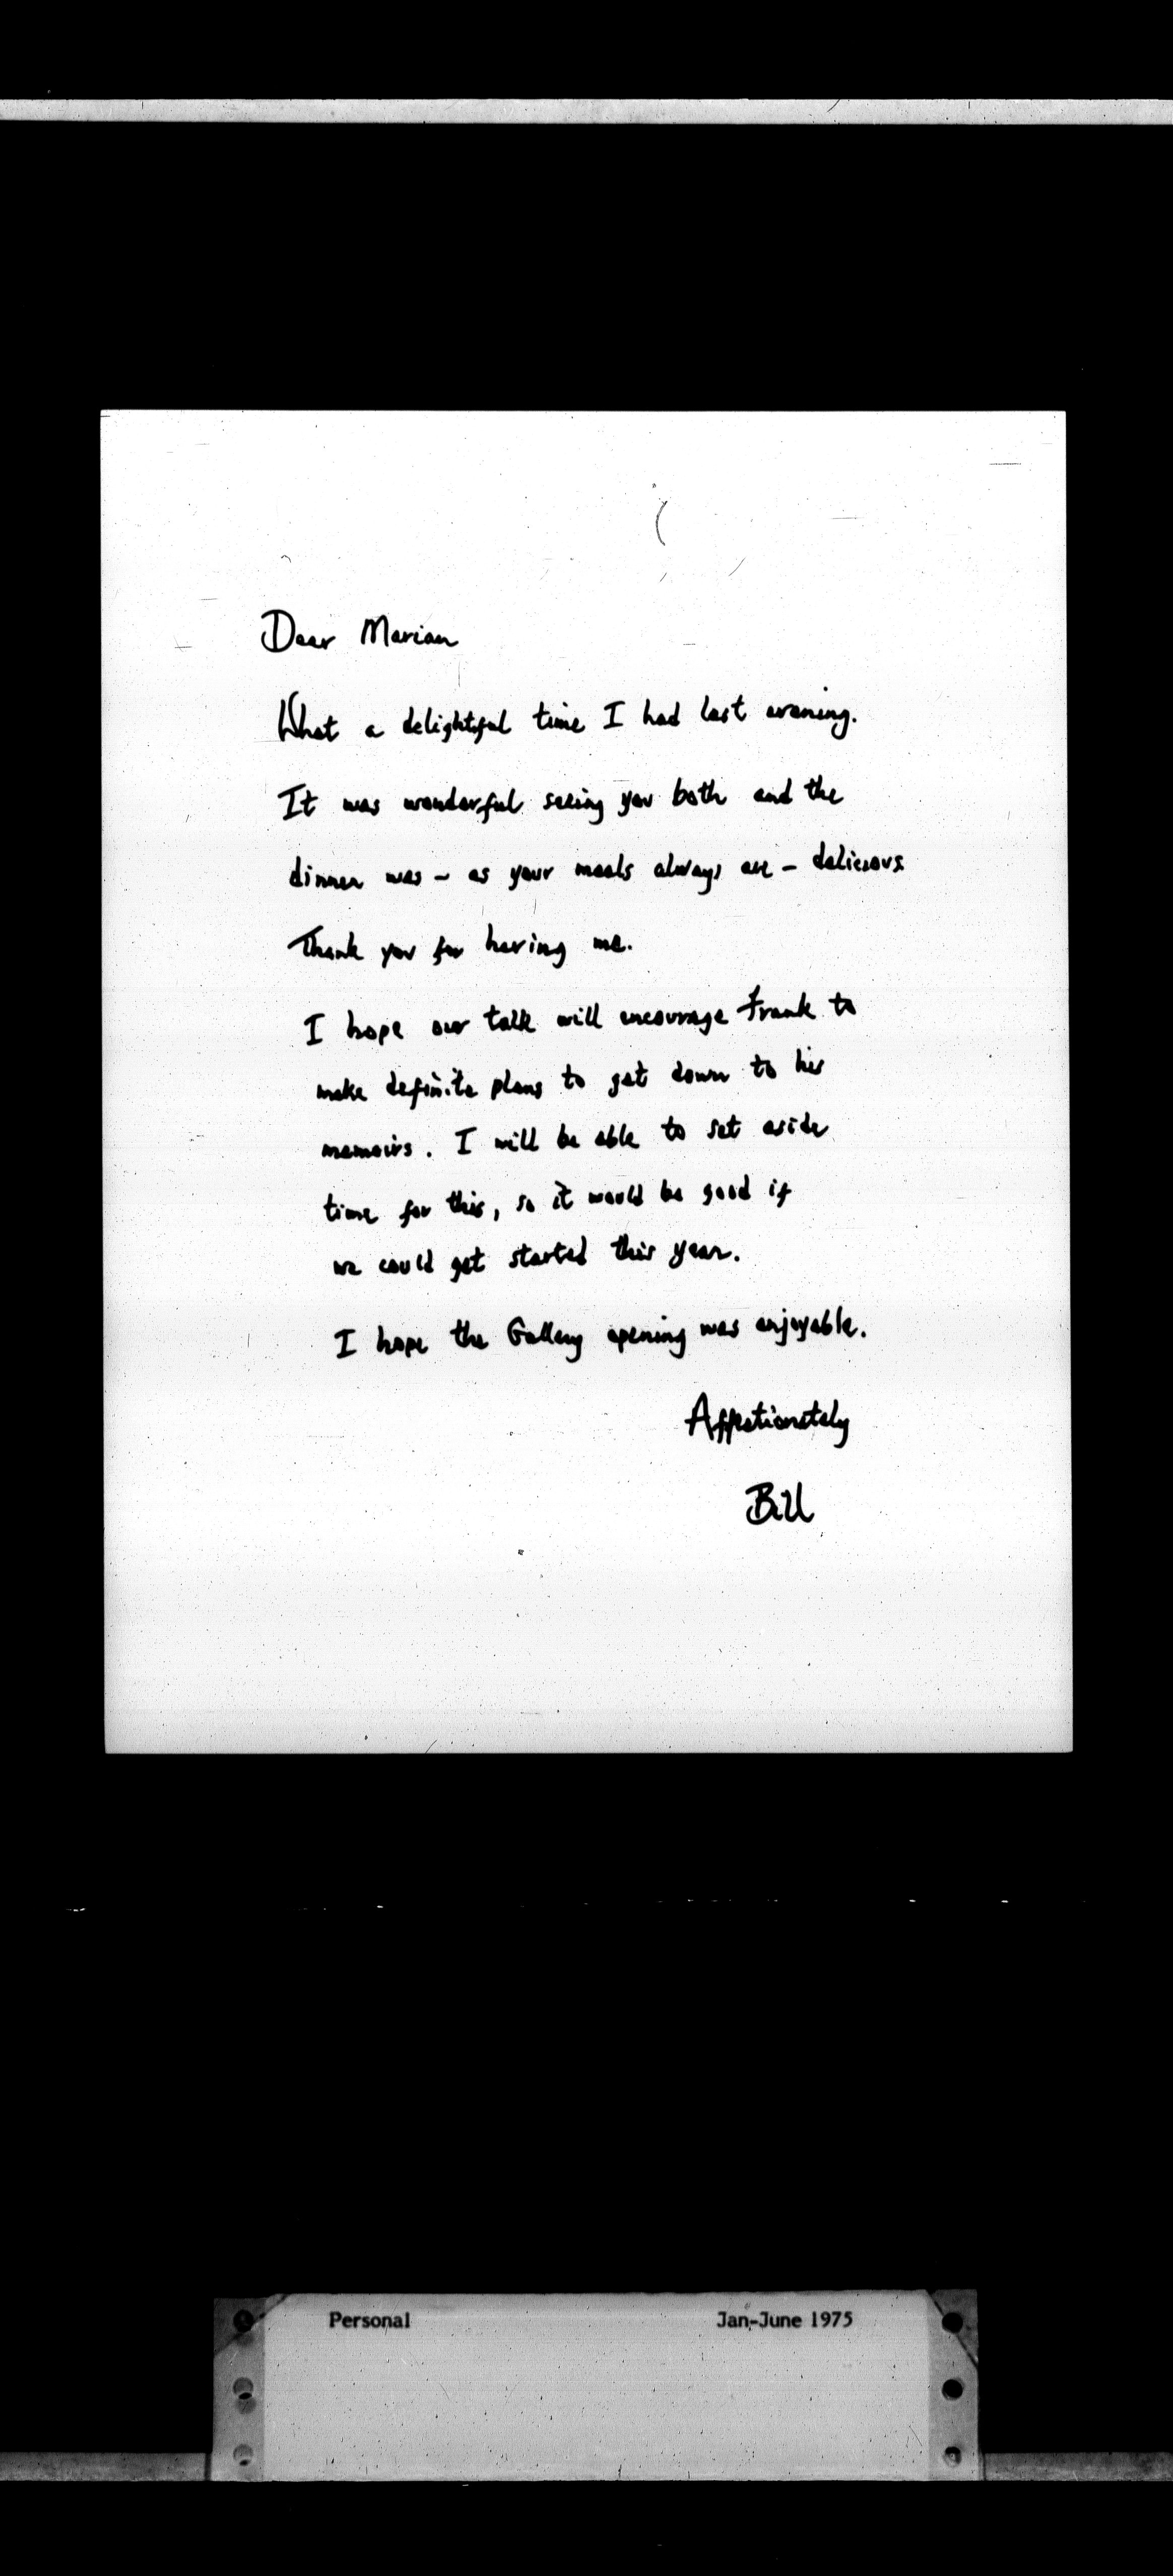 Dear Marian
What a delightful time I had last evening.
It was wonderful seeing you both and the
dinner was – as your meals always are – delicious
Thank you for having me.
I hope our talk will encourage Frank to
make definite plans to get down to his
memoirs. I will be able to set aside
time for this, so it would be good if
we could get started this year.
I hope the Gallery opening was enjoyable.
Affectionately
Bill
Personal Jan-June 1975